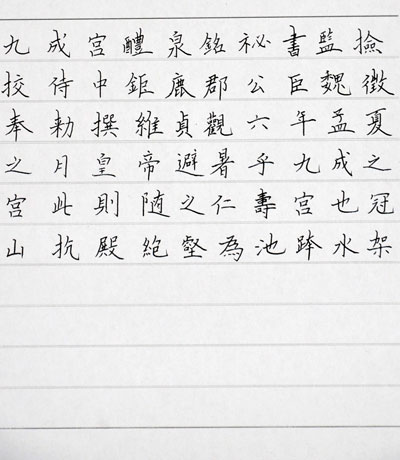 九成宮醴泉銘祕書監撿
挍侍中鉅鹿郡公臣魏徴
奉勑撰維貞觀六年孟夏
之月皇帝避暑乎九成之
宮此則随之仁壽宮也冠
山抗殿絶壑為池跨水架